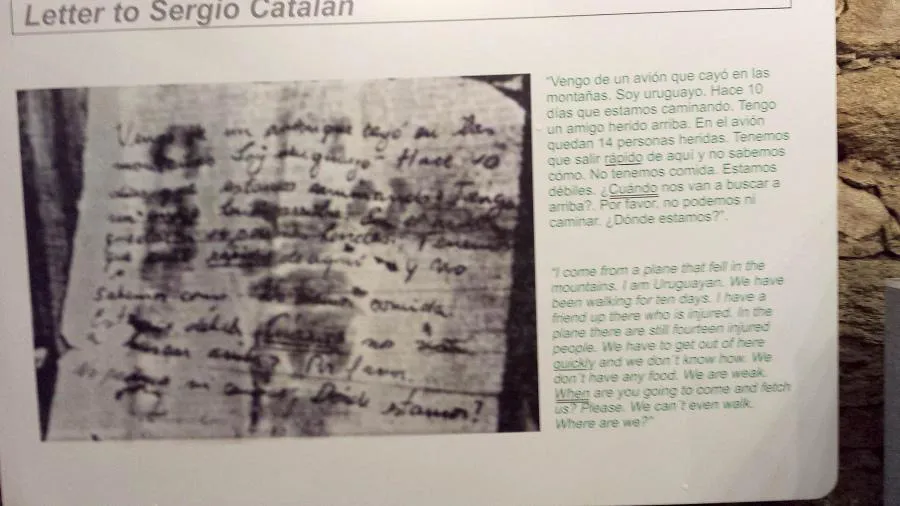 Letter to Sergio Catalán
Vengo de un avión que cayó en las
montañas. Soy uruguayo. Hace 10
días que estamos caminando. Tengo
un amigo herido arriba. En el avión
quedan 14 personas heridas. Tenemos
que salir rápido de aquí y no
sabemos como. No tenemos comida.
Estamos débiles. Cuándo nos van
a buscar arriba? Por favor,
no podemos ni caminar. Dónde estamos?
"Vengo de un avión que cayó en las
montañas. Soy uruguayo. Hace 10
días que estamos caminando. Tengo
un amigo herido arriba. En el avión
quedan 14 personas heridas. Tenemos
que salir rápido de aquí y no sabemos
cómo. No tenemos comida. Estamos
débiles. ¿Cuándo nos van a buscar a
arriba?. Por favor, no podemos ni
caminar. ¿Dónde estamos?".
"I come from a plane that fell in the
mountains. I am Uruguayan. We have
been walking for ten days. I have a
friend up there who is injured. In the
plane there are still fourteen injured
people. We have to get out of here
quickly and we don´t know how. We
don´t have any food. We are weak.
When are you going to come and fetch
us? Please. We can´t even walk.
Where are we?"